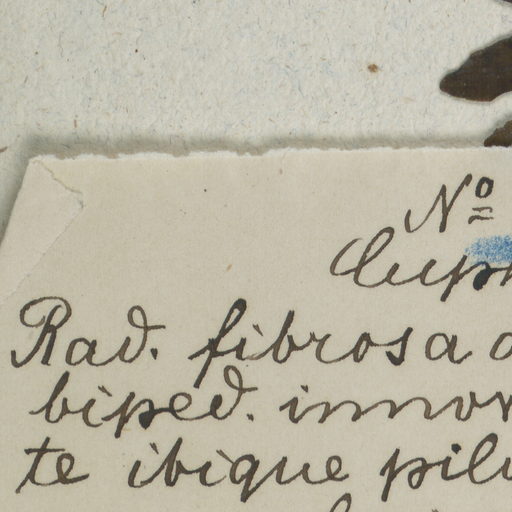 Nº
Cuph
Rad. fibrosa
biped. innov
te ibique pilo